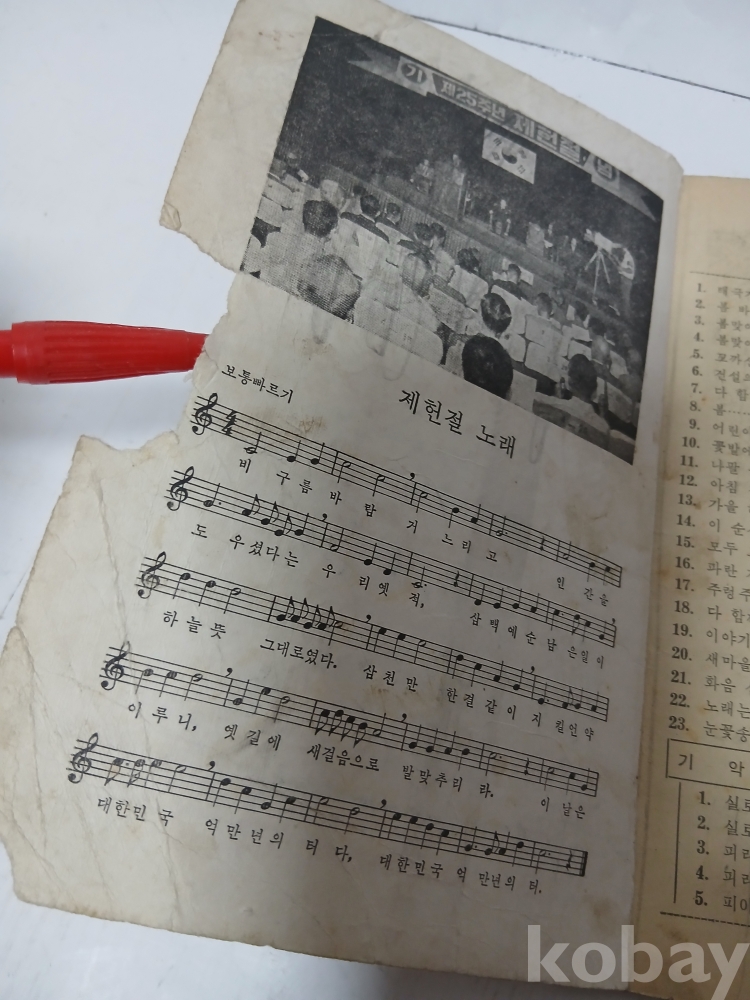 기
제25주년 제헌절
념
보통빠르기
제헌절 노래
4
4
비 구름 바람 거 느리 고 인 간을
도 우셨다는 우 리옛 적, 삼 백 예순 남 은일 이
하늘뜻 그대로였다. 삼천만 한결 같이 지 킬언약
이루니, 옛길에 새걸음으로 발맞추리 라. 이 날은
대한민 국 억만년의 터 다, 대한민국 억 만년의 터.
1. 태극기
2. 봄
3. 봄맞이
4. 봄맞이
5.
6.
7. 다 함
8. 봄
9. 어린이
10. 꽃밭에
11. 나팔
12. 아침
13. 가을
14. 이 순
15. 모두
16. 파란
17. 주렁주
18. 다 함
19. 이야기
20. 새마을
21. 화음
22. 노래는
23. 눈꽃송
기 악
1. 실로
2. 실로
3. 피리
4. 피리
5. 피아
kobay